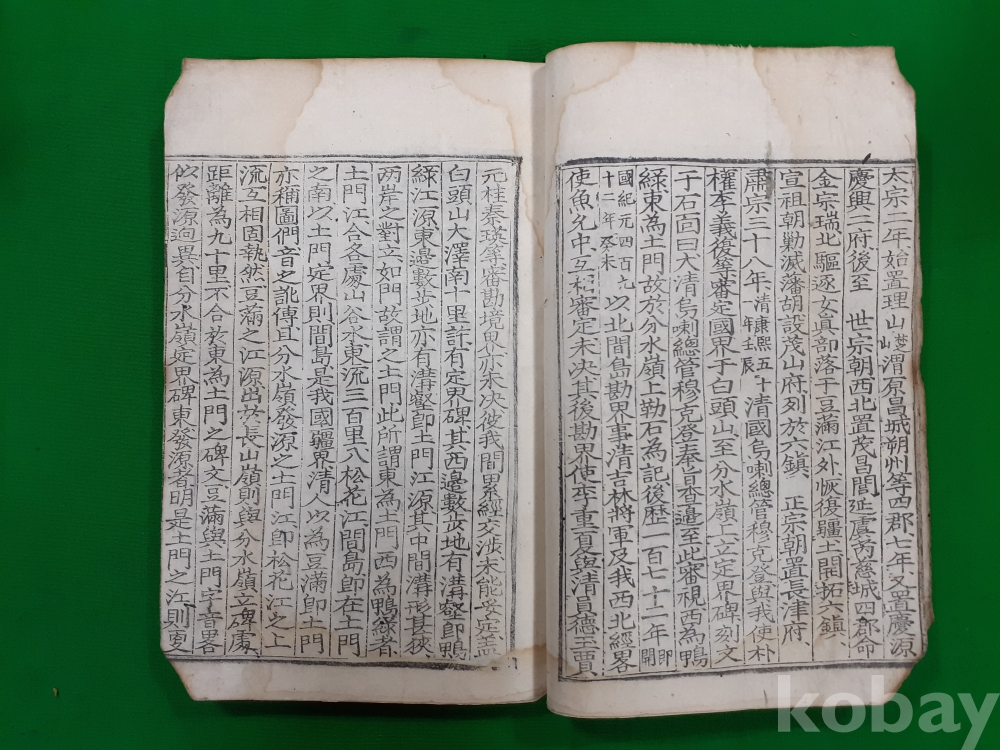 太宗二年始置理山楚山渭原昌城朔州等四郡七年又置慶源
慶興二府後至 世宗朝西北置茂昌閭延虞芮慈城四郡命
金宗瑞北驅逐女眞部落于豆滿江外恢復疆土開拓六鎭
宣祖朝勦滅藩胡設茂山府列於六鎭 正宗朝置長津府
肅宗三十八年清康熙五十年壬辰清國烏喇總管穆克登與我使朴
權李義復等審定國界于白頭山至分水嶺立定界碑刻文
于石面曰大清烏喇總管穆克登奉旨查邊至此審視西爲鴨
綠東爲土門故於分水嶺上勒石爲記後歷一百七十二年卽開
國紀元四百九十二年癸未以北間島勘界事清吉林將軍及我西北經畧
使魚允中互相審定未決其後勘界使李重夏與清員德玉賈
元桂秦瑛等審勘境界亦未决彼我間累經交涉未能妥定盖
白頭山大澤南十里許有定界碑其西邊數步地有溝壑卽鴨
綠江源東邊數步地亦有溝壑卽土門江源其中間溝形甚狹
两岸之對立如門故謂之土門此所謂東為土門西為鴨綠者
土門江合各處山谷水東流三百里入松花江間島卽在土門
之南以土門定界則間島是我國疆界清人以為豆滿卽土門
亦稱圖們音之訛傳且分水嶺發源之土門江卽松花江之上
流互相固執然豆滿之江源出於長山嶺則與分水嶺立碑處
距離為九十里不合於東為土門之碑文豆滿與土門字音畧
似發源逈異自分水嶺定界碑東發源者明是土門之江則更
kobay